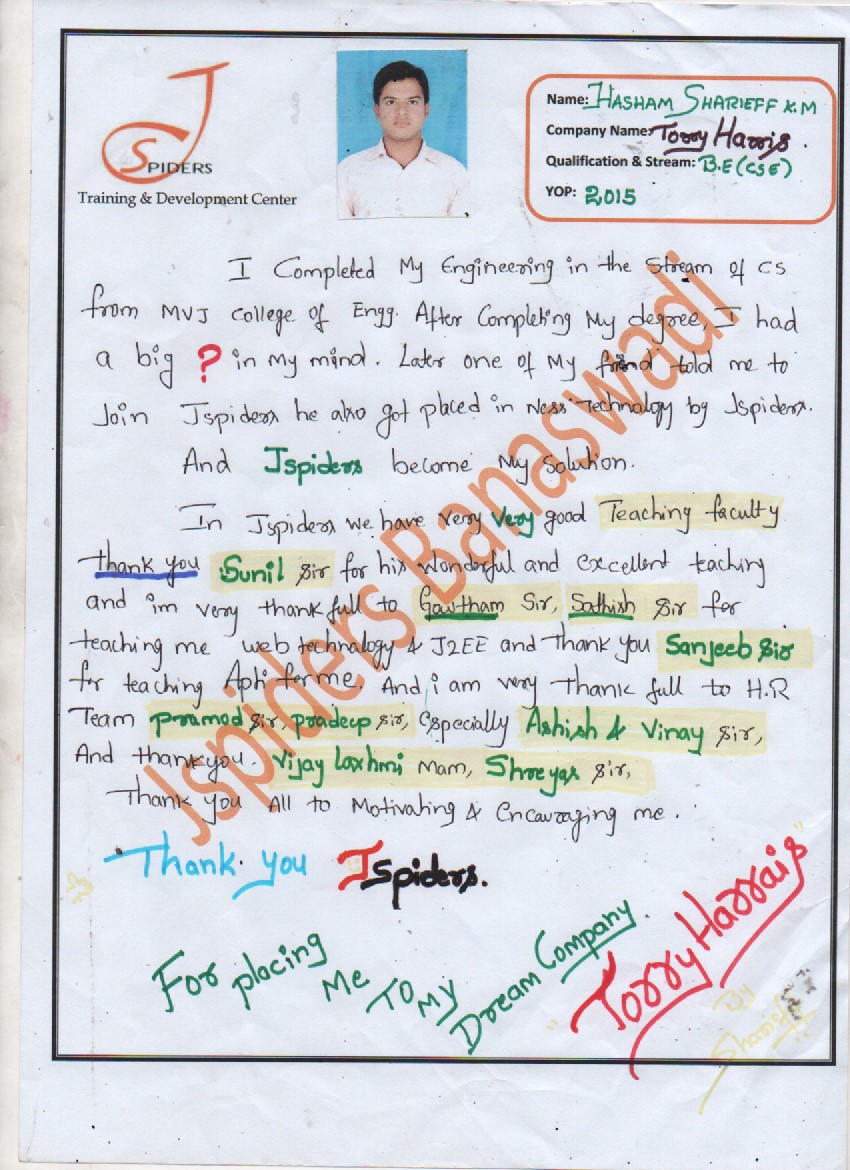 J SPIDERS
Training & Development Center
Name: HASHAM SHARIEFF K.M
Company Name: Torry Harris.
Qualification & Stream: B.E (CSE)
YOP: 2015
I Completed My Engineering in the Stream of CS
from MVJ College of Engg. After Completing My degree, I had
a big ? in my mind. Later one of My friend told me to
Join Jspiders he also got placed in Ness Technology by Jspiders.
And Jspiders become My Solution.
In Jspiders we have very very good Teaching faculty
Thank you Sunil Sir for his wonderful and excellent teaching
and im very thank full to Gowtham Sir, Sathish Sir for
teaching me web technology & J2EE and Thank you Sanjeeb Sir
for teaching Apti for me. And i am very Thank full to H.R
Team pramod Sir, pradeep Sir, especially Ashish & Vinay Sir,
And thankyou. Vijay Laxhmi Mam, Shreyas Sir,
Thank you All to Motivating & encauraging me.
Thank you Jspiders.
For placing Me To My Dream Company.
"Torry Harrais"
By Sharieff
Jspiders Banaswadi